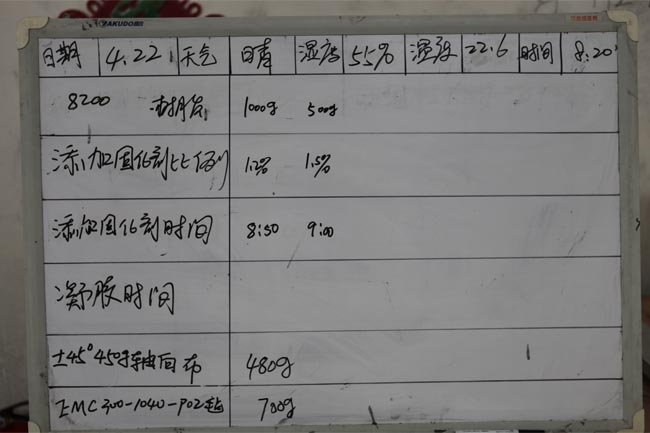 YAKUDO
日期 4.22 天气 日晴 湿度 55% 温度 22.6 时间 8:20
8200 树脂 1000g 500g
添加固化剂比例 1.2% 1.5%
添加固化剂时间 8:50 9:00
凝胶时间
±45° 450g 轴向布 480g
EMC300-1040-P02毡 700g